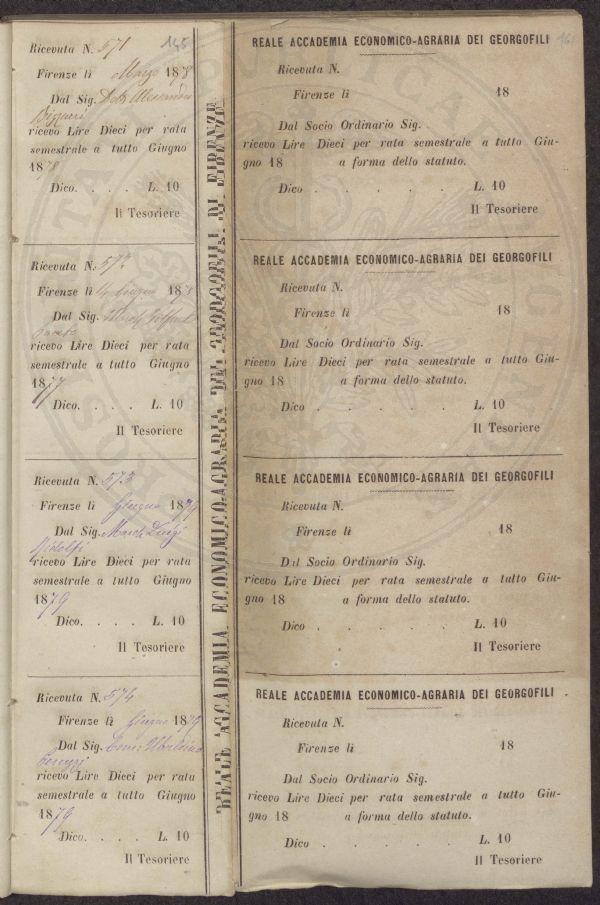 145
Ricevuta N. 571
Firenze lì Marzo 1878
Dal Sig. Dott. Alessandro
Bizzarri
ricevo Lire Dieci per rata
semestrale a tutto Giugno
1878
Dico. . . . L. 10
Il Tesoriere
Ricevuta N. 572
Firenze lì Giugno 187
Dal Sig.
ricevo Lire Dieci per rata
semestrale a tutto Giugno
1877
Dico. . . . L. 10
Il Tesoriere
Ricevuta N. 573
Firenze lì Giugno 1879
Dal Sig. March. Luigi
Ridolfi
ricevo Lire Dieci per rata
semestrale a tutto Giugno
1879
Dico. . . . L. 10
Il Tesoriere
Ricevuta N. 574
Firenze lì Giugno 1879
Dal Sig. Comm. Ubaldino
Peruzzi
ricevo Lire Dieci per rata
semestrale a tutto Giugno
1879
Dico. . . . L. 10
Il Tesoriere
REALE ACCADEMIA ECONOMICO-AGRARIA DEI GEORGOFILI DI FIRENZE
REALE ACCADEMIA ECONOMICO-AGRARIA DEI GEORGOFILI
Ricevuta N.
Firenze lì 18
Dal Socio Ordinario Sig.
ricevo Lire Dieci per rata semestrale a tutto Giu-
gno 18 a forma dello statuto.
Dico . . . . L. 10
Il Tesoriere
REALE ACCADEMIA ECONOMICO-AGRARIA DEI GEORGOFILI
Ricevuta N.
Firenze lì 18
Dal Socio Ordinario Sig.
ricevo Lire Dieci per rata semestrale a tutto Giu-
gno 18 a forma dello statuto.
Dico . . . . L. 10
Il Tesoriere
REALE ACCADEMIA ECONOMICO-AGRARIA DEI GEORGOFILI
Ricevuta N.
Firenze lì 18
Dal Socio Ordinario Sig.
ricevo Lire Dieci per rata semestrale a tutto Giu-
gno 18 a forma dello statuto.
Dico . . . . L. 10
Il Tesoriere
REALE ACCADEMIA ECONOMICO-AGRARIA DEI GEORGOFILI
Ricevuta N.
Firenze lì 18
Dal Socio Ordinario Sig.
ricevo Lire Dieci per rata semestrale a tutto Giu-
gno 18 a forma dello statuto.
Dico . . . . L. 10
Il Tesoriere